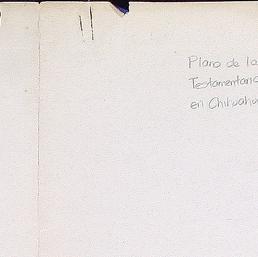 Plano de la
Testamentari
en Chihuahu